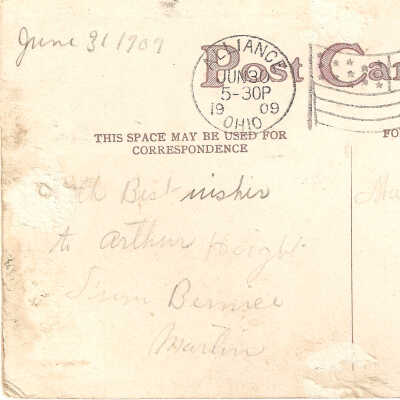 June 31 1909
Post Car
ALLIANCE
JUN 30
5-30P
19 09
OHIO
THIS SPACE MAY BE USED FOR
CORRESPONDENCE
FO
Best wishes
to Arthur
From
Martin